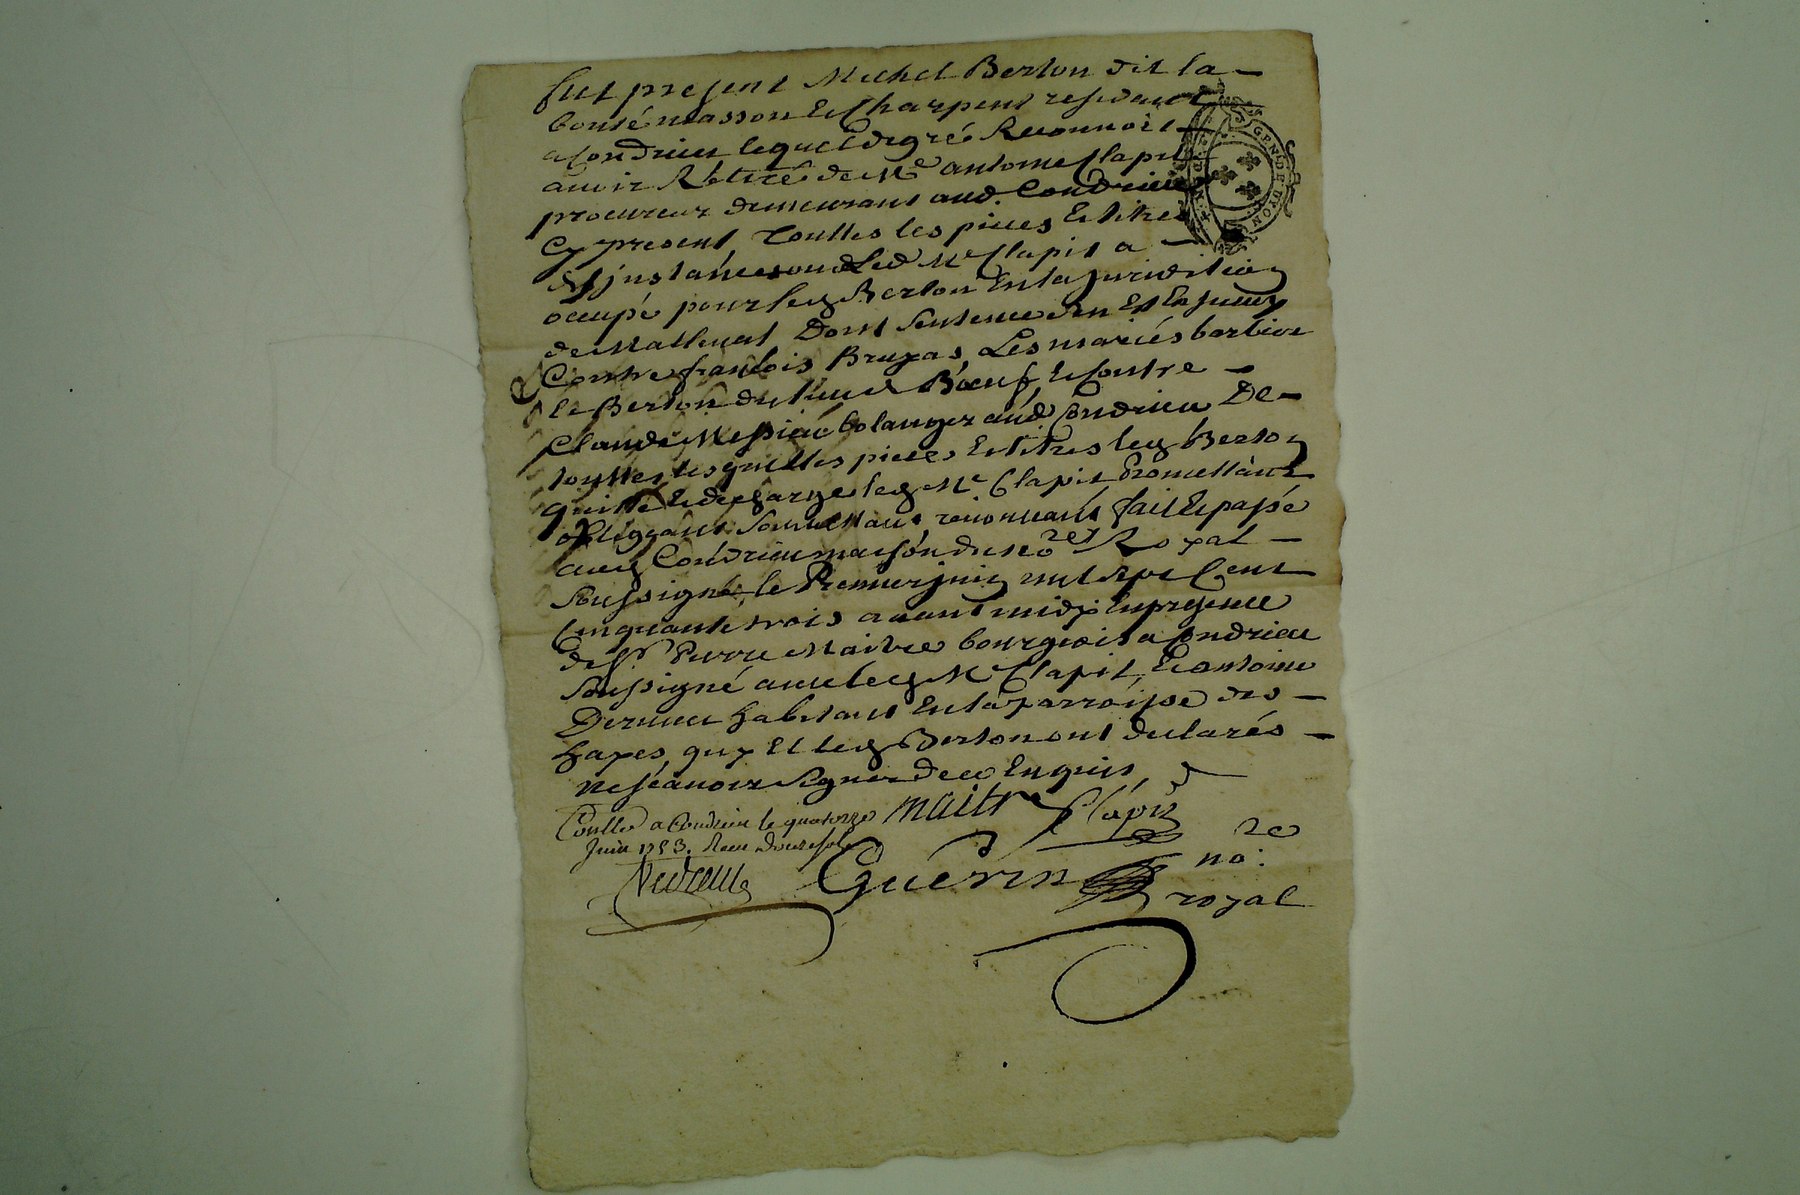 fut present Michel Berton dit la
bonté masson Et Charpent residant
a Condrieu lequel degré Reconnoit
avoir Retiré de Me antoine Clapit
procureur demeurant aud. Condrieu
Cy present Touttes les pieces Et titres
Et instances ou Led Me Clapit a
ocupé pour led Berton En la juridition
de Mallenal Dont Sentence
Contre francois Brupas, Les mariés barbier
Et Berton du lieu de Bœuf Et Contre
Claude Messié bolanger aud Condrieu De
touttes lesquelles pieces Et titres led Berton
quitte Et decharge led Me Clapit Promettant
obligeant Soumettant renonceant fait Et passé
aud Condrieu maison du nore Royal
Soussigné le Premier juin mil sept Cent
Cinquante trois avant midy En presence
de Sr. Pierre Maitre bourgeois a Condrieu
Soussigné avec led Me Clapit, Et antoine
Dernieu habitant En la parroisse des
hayes, quy Et led Berton ont declarés
ne scavoir Signer de ce Enquis
maitre Clapit
Conllé a Condrieu le quatorze
Juin 1753. Recu douze sols
Guerin no:re
royal
GEN. DE LYON